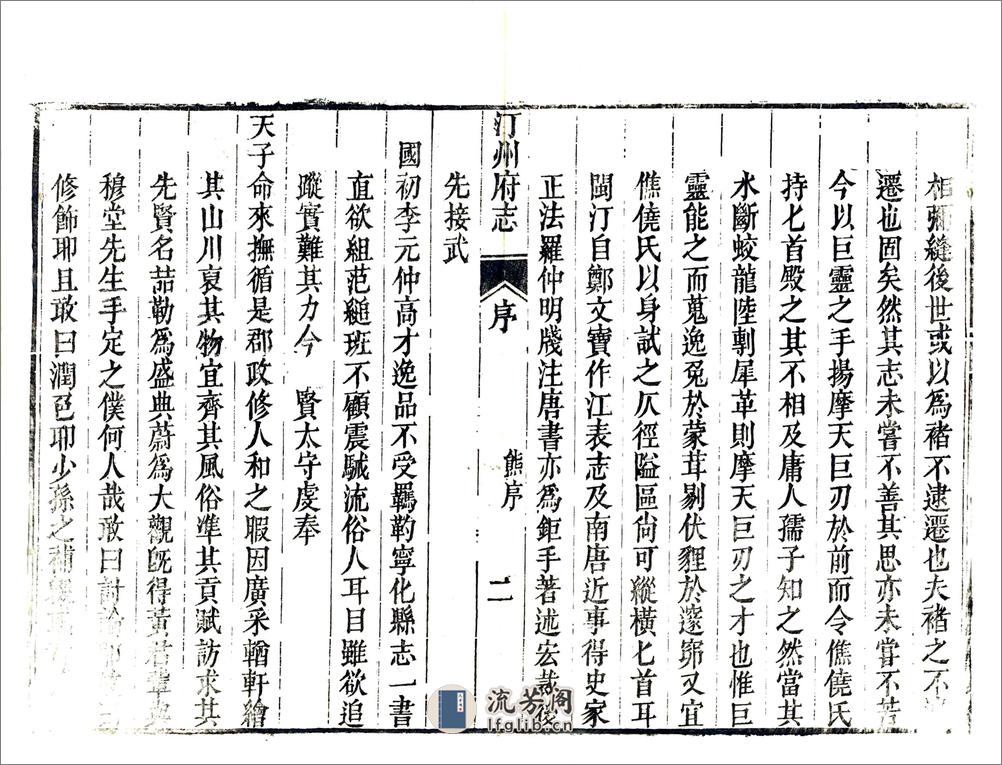 相彌縫後世或以爲褚不逮遷也夫褚之不
遷也固矣然其志未嘗不善其思亦未嘗不苦
今以巨靈之手揚摩天巨刃於前而令僬僥氏
持匕首殿之其不相及庸人孺子知之然當其
水斷蛟龍陸剸犀革則摩天巨刃之才也惟巨
靈能之而蒐逸兔於蒙茸剔伏貍於邃窌又宜
僬僥氏以身試之仄徑隘區尙可縱橫匕首耳
閩汀自鄭文寶作江表志及南唐近事得史家
正法羅仲明牋注唐書亦爲鉅手著述宏
汀州府志 序 熊序 二
先接武
國初李元仲高才逸品不受羈靮寧化縣志一書
直欲組范縋班不顧震駴流俗人耳目雖欲追
蹤實難其力今 賢太守虔奉
天子命來撫循是郡政修人和之暇因廣采輶軒繪
其山川裒其物宜齊其風俗準其貢賦訪求其
先賢名喆勒爲盛典蔚爲大觀旣得黃君輩
穆堂先生手定之僕何人哉敢曰討論
修飾耶且敢曰潤色耶少孫之補
流芳阁
lfglib.cn